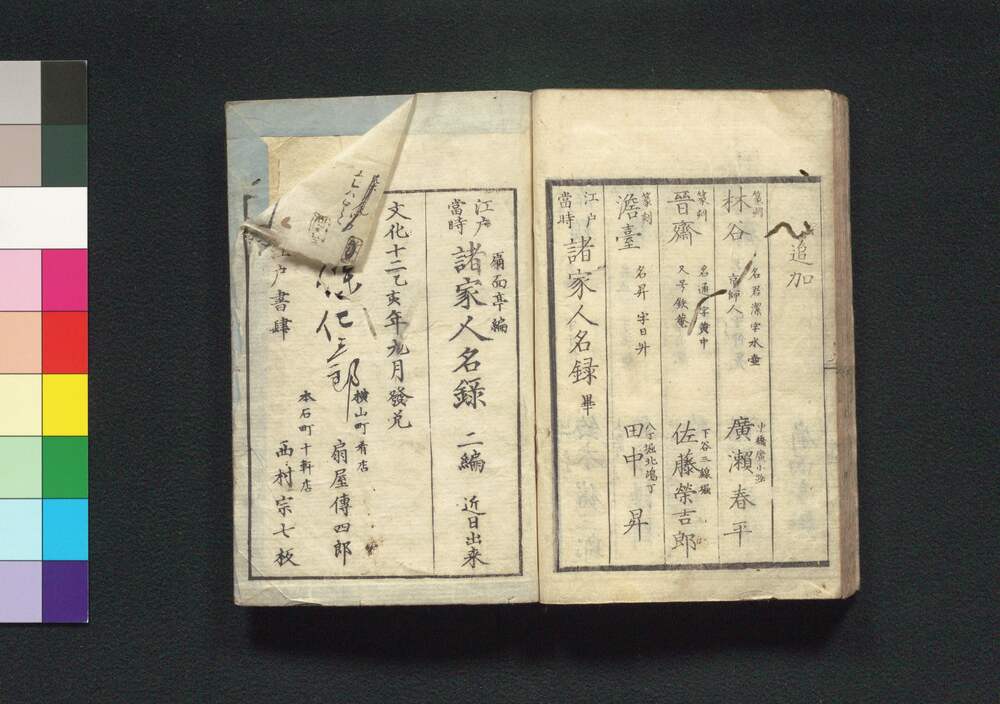 追加
篆刻
林谷
名君潔字水壺
京師人
廣瀬春平
篆刻
晉齋
名通字黄中
又号鉄菴
下谷三線堀
佐藤榮吉郎
篆刻
澹臺
名昇字日舛
八丁堀北嶋丁
田中昇
江戸
當時
諸家人名録 畢
扇面亭編
江戸
當時
諸家人名録 二編 近日出来
文化十二乙亥年九月發兌
横山町肴店
扇屋傳四郎
江戸書肆
本石町十軒店
西村宗七板